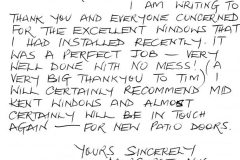 I AM WRITING TO
THANK YOU AND EVERYONE CONCERNED
FOR THE EXCELLENT WINDOWS THAT
I HAD INSTALLED RECENTLY. IT
WAS A PERFECT JOB - VERY
WELL DONE WITH NO MESS! (A
VERY BIG THANKYOU TO TIM) I
WILL CERTAINLY RECOMMEND MID
KENT WINDOWS AND ALMOST
CERTAINLY WILL BE IN TOUCH
AGAIN - FOR NEW PATIO DOORS.
YOURS SINCERELY